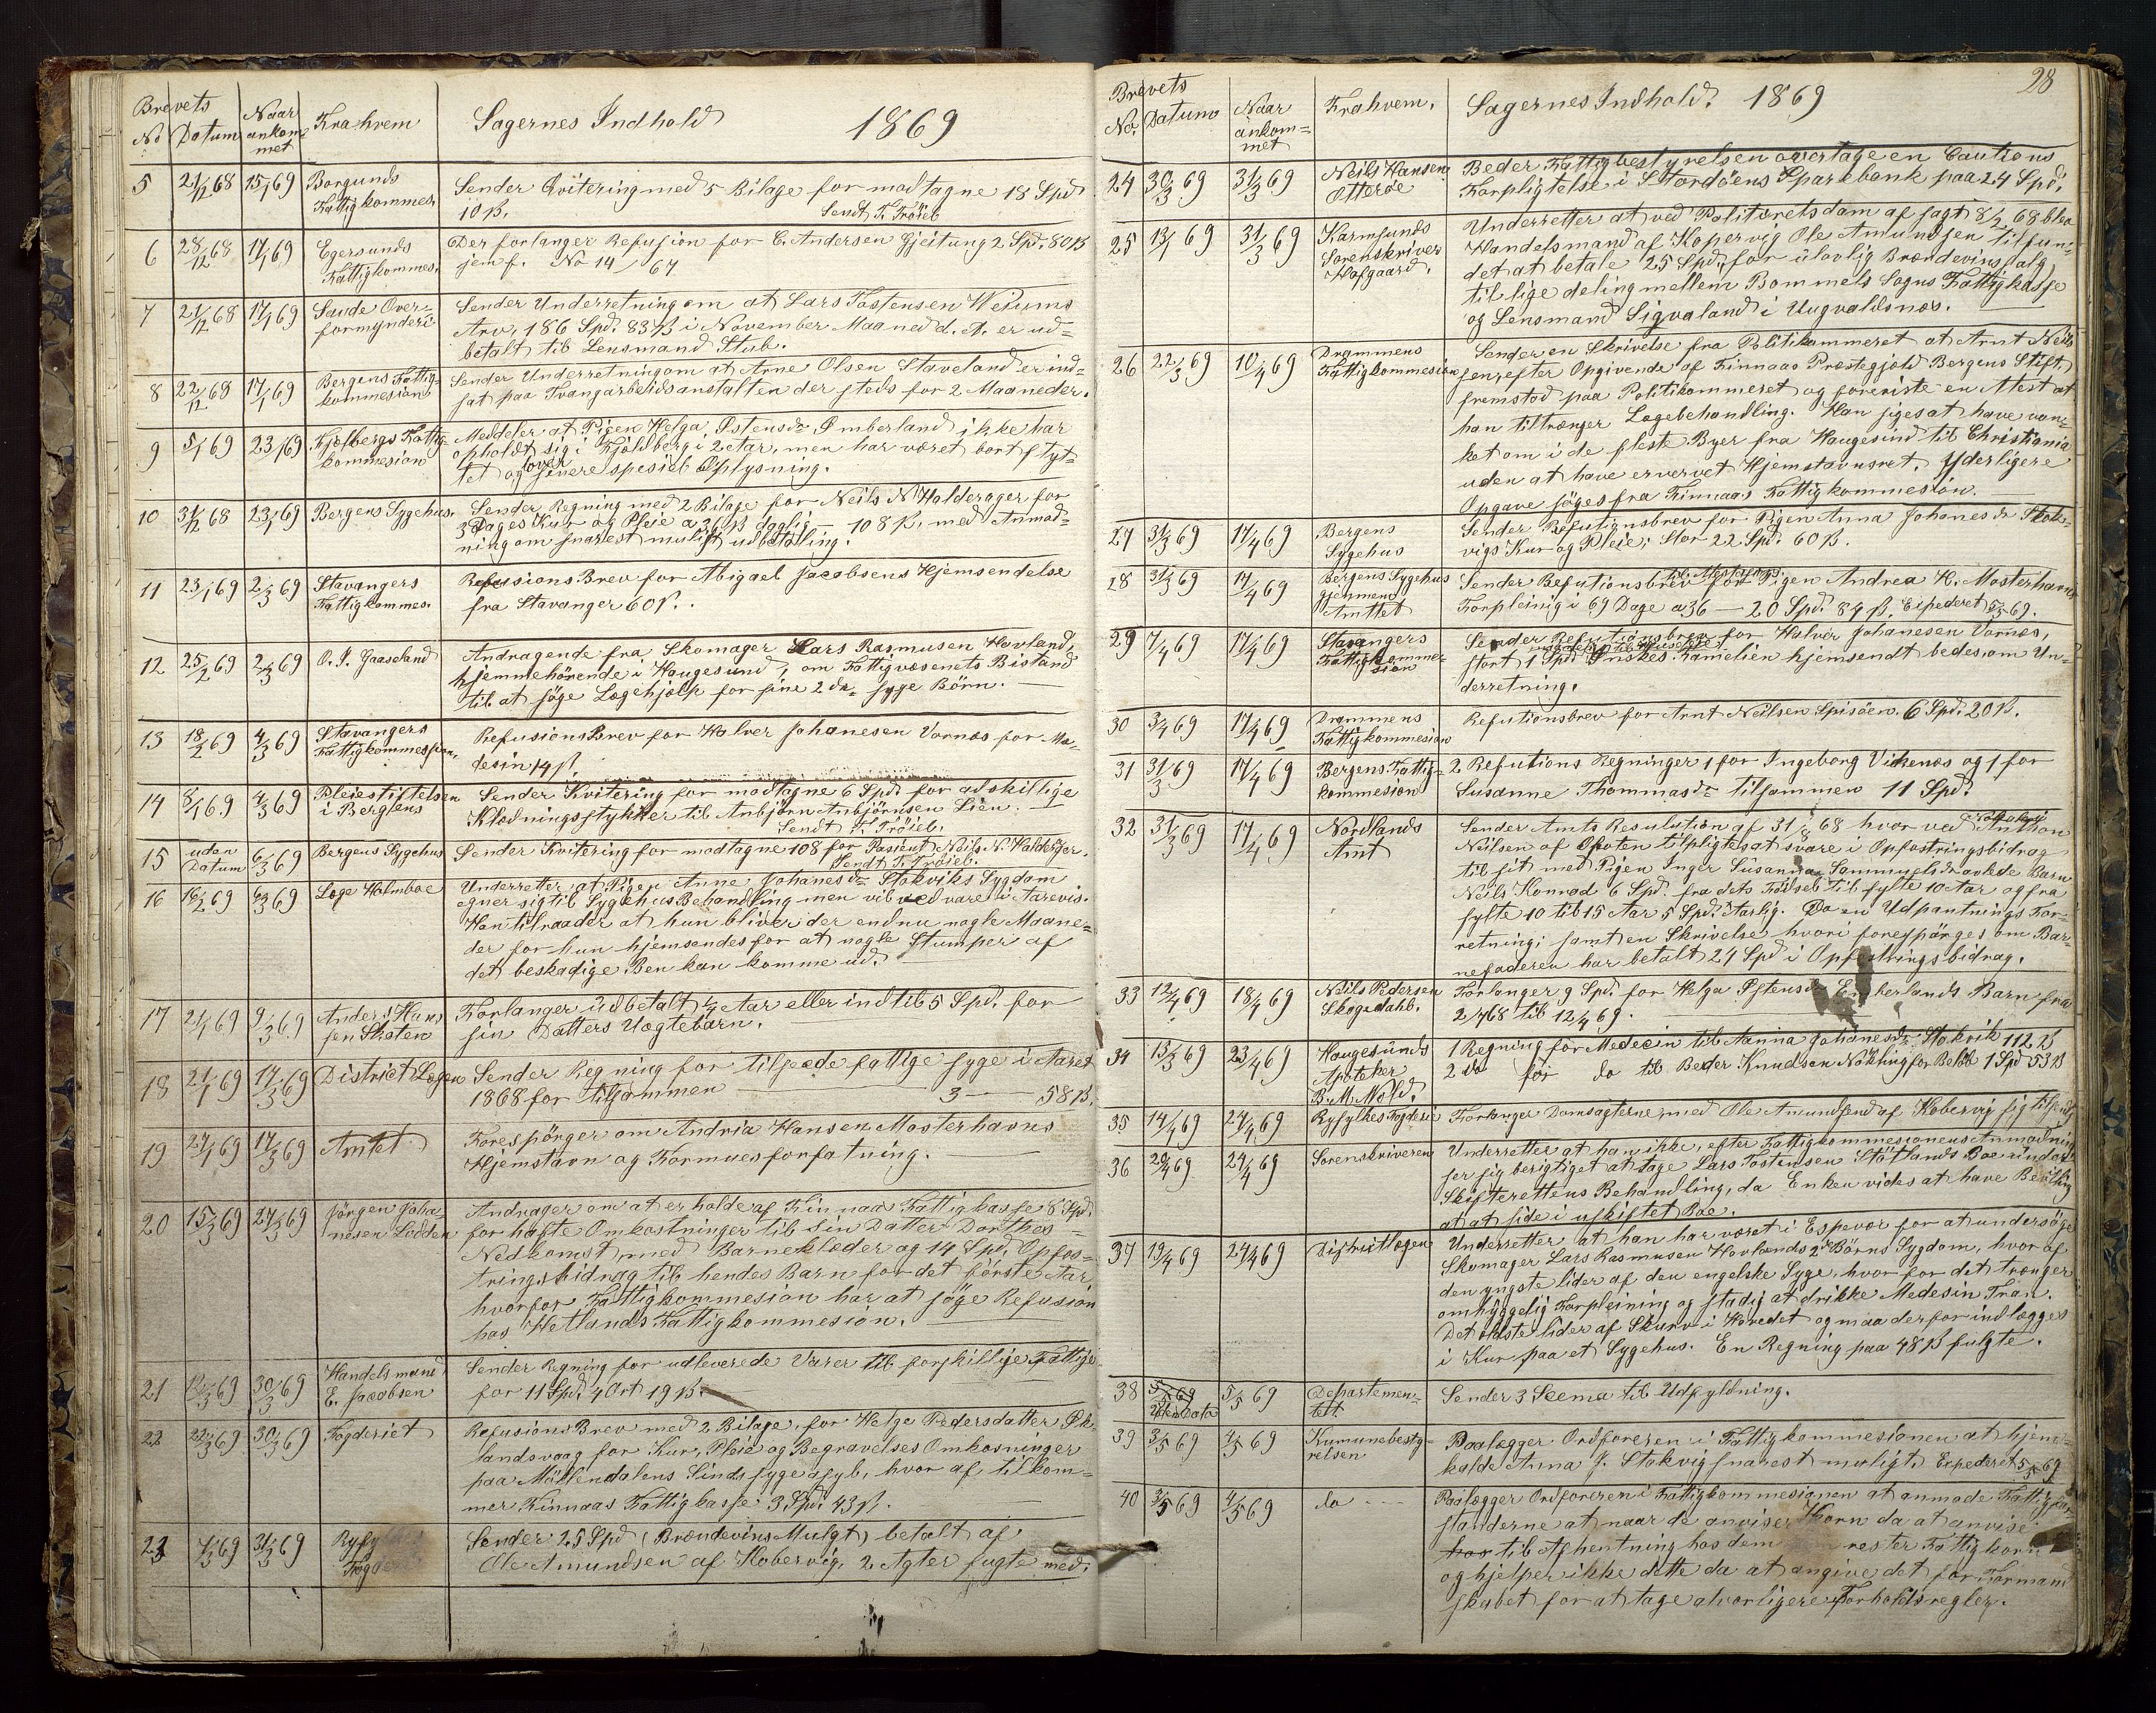 Brevets
No Datum Naar ankommet Fra hvem Sagernes Indhold 1869
5 21/12 68 15/1 69 Borgunds Sender Qvitering med 5 Bilage for modtagne 18 Spd
Fattigkommes. 10 ß. Sendt T. Tröieb
6 28/12 68 17/1 69 Egersunds Der forlanger Refusion for C. Andersen Gjeitung 2 Spd. 80 ß
Fattigkommes. jemf. No 14/67
7 21/12 68 17/1 69 Saude Over- Sender Underretning om at Lars Tostensen
formynderi Arv, 186 Spd. 83 ß i November Maaned d. A. er ud-
betalt til Lensmand Stub.
8 22/12 68 17/1 69 Bergens Fattig- Sender Underretning om at Arne Olsen Staveland er ind-
kommesion sat paa Tvangarbeidsanstalten der steds for 2 Maaneder.
9 5/1 69 23/1 69 Fattig- Meddeler at Pigen Helga Østensdr Imberland ikke har
kommesion opholdt sig i Fjeldberg i 2 Aar, men har været bort flyt-
tet og over senere spesiel Oplysning.
10 31/12 68 23/1 69 Bergens Sygehus. Sender Regning med 2 Bilage for Neils N Halderager for
3 Dages Kur og Pleie a 36 ß daglig — 108 ß, med Anmod-
ning om snarest muligt udbetaling.
11 23/1 69 2/3 69 Stavangers Refusions Brev for Abigael Jacobsens Hjemsendelse
Fattigkommes. fra Stavanger 60 ß.
12 25/2 69 2/3 69 O. J. Gaaseland Andragende fra Skomager Lars Rasmusen Hovland,
hjemmehörende i Haugesund, om Fattigvæsenets Bistand
til at söge Lægehjelp for sine 2 de syge Börn.
13 18/2 69 4/3 69 Stavangers Refusions Brev for Halver Johanesen Vornæs for Me-
Fattigkommession. desin 14 ß
14 8/1 69 4/3 69 Pleiestiftelsen Sender Kvitering for modtagne 6 Spd for adskillige
i Bergens Klædningsstykker til Anbjörn Anbjörnsen Lien.
Sendt T. Tröieb.
15 uden Datum 6/3 69 Bergens Sygehus Sender Kvitering for modtagne 108 for Pasient Neils N. Halderager.
Sendt T. Tröieb.
16 16/2 69 6/3 69 Læge Holmboe Underretter at Pigen Anne Johanesdr Stokviks Sygdom
egner sig til Sygehus Behandling men vil ved vare i Aarevis.
Han tilraader at hun bliver der endnu nogle Maane-
der for hun hjemsendes for at nogle Stumper af
det beskadige Ben kan komme ud.
17 21/1 69 9/3 69 Anders Han- Forlanger udbetalt 1/4 Aar eller indtil 5 Spd. for
sen Skoten sin Datters Uægtebarn.
18 21/1 69 17/3 69 District Lægen Sender Regning for tilseede fattige syge i Aaret
1868 for tilsammen 3 — 58 ß.
19 27/1 69 17/3 69 Amtet Forespörger om Andria Hansen Mosterhavns
Hjemstavn og Formuesforfatning.
20 15/3 69 27/3 69 Jörgen Joha- Andrager om at erholde af Finnaas Fattigkasse 8 Spd.
nesen Lodden for hafte Omkostninger til sin Datter Dorthes
Nedkomst med Barneklæder og 14 Spd. Opfos-
tringsbidrag til hendes Barn for det förste Aar,
hvorfor Fattigkommesion har at söge Refusion
hos Hetlands Fattigkommesion.
21 12/3 69 30/3 69 Handelsmand Sender Regning for udleverede Varer til forskillige Fattige
E. Jacobsen for 11 Spd. 4 Ort 19 ß.
22 22/3 69 30/3 69 Fogderiet Refusions Brev med 2 Bilage, for Helge Pedersdatter Øk-
landsvaag for Kur, Pleie og Begravelses Omkosninger
paa Möllendalens Sindssygeasyl, hvor af tilkom-
mer Finnaas Fattigkasse 3 Spd. 43 ß.
23 7/3 69 31/3 69 Sender 25 Spd (Brændevins Mulgt) betalt af
Ole Amundsen af Kobervig. 2 Agter fugte med.
28
Brevets
No. Datum Naar ankommet Fra hvem. Sagernes Indhold. 1869
24 30/3 69 31/3 69 Neils Hansen Beder Fattigbestyrelsen overtage en Cautions
Otteröe Forpligtelse i Stordöens Sparebank paa 24 Spd.
25 13/1 69 31/3 69 Karmsunds Underretter at ved Politeretsdom af sagt 8/12 68 blev
Sorenskriver Handelsmand af Kopervig Ole Amundsen tilfun-
Hofgaard. det at betale 25 Spd. for ulovlig Brændevinssalg
til lige deling mellem Bommels Sogns Fattigkasse
og Lensmand Sigvaland i Uugvaldsnes.
26 22/3 69 10/4 69 Drammens Sender en Skrivelse fra Politikammeret at Arnt Neils
Fattigkommesion sen, efter Opgivende af Finnaas Præstegjeld Bergens Stift,
fremstod paa Politikammeret og foreviste en Atest at
han tiltrænger Lægebehandling. Han siges at have van-
ket om i de fleste Byer fra Haugesund til Christiania
uden at have ervervet Hjemstavnsret. Yderligere
Opgave söges fra Finnaas Fattigkommesion.
27 31/3 69 17/4 69 Bergens Sender Refutionsbrev for Pigen Anna Johanesdr Stok-
Sygehus vigs Kur og Pleie, Stor 22 Spd. 60 ß.
28 31/3 69 17/4 69 Bergens Sygehus Sender Refutionsbrev for Pigen Andrea H. Mosterhavns
gjennem Amttet Forpleinig i 69 Dage a 36 — 20 Spd. 84 ß. Expederet 5/5 69.
29 7/4 69 17/4 69 Stavangers Sender Refutionsbrev for Halver Johanesen Vornæs,
Fattigkomme- stort 1 Spd. Ønskes Familien hjemsendt bedes om Un-
sion derretning.
30 3/4 69 17/4 69 Drammens Refutionsbrev for Arnt Neilsen Spisöen. 6 Spd. 20 ß.
Fattigkommesion
31 31/3 69 17/4 69 Bergens Fattig- 2 Refutions Regninger 1 for Ingeborg Vikenes og 1 for
kommesion Susanne Thommasdr tilsammen 11 Spd.
32 31/3 69 17/4 69 Nordlands Sender Amts Resulution af 31/8 68 hvor ved Anthon
Amt Neilsen af Ofoten tilpligtes at svare i Opfostringsbidrag
til sit med Pigen Inger Susanna Sammuelsdr avlede Barn
Neils Konrad 6 Spd. fra dets Födsel til fylte 10 Aar og fra
fylte 10 til 15 Aar 5 Spd. Aarlig. Da en Udpantnings For-
retning; samt en Skrivelse hvori forespörges om Bar-
nefaderen har betalt 24 Spd i Opfostringsbidrag.
33 12/4 69 18/4 69 Neils Pedersen Forlanger 9 Spd. for Helga Østensdr Emberlands Barn fra
Skogedahl. 2/7 68 til 12/4 69.
34 13/3 69 23/4 69 Haugesunds 1 Regning for Medecin til Anna Johanesdr Stokvik 112 ß
Apoteker 2 do for do til Beder Knudsen Nökling for Beløb 1 Spd 53 ß
B. M. Mold.
35 14/4 69 24/4 69 Ryfylkes Fogderi Forlanger Domsagterne, med Ole Amundsend af Kobervig sig tilsendt
36 20/4 69 24/4 69 Sorenskriveren Underretter at han ikke, efter Fattigkommesionens Anmodning
ser sig berigtiget at tage Lars Tostensen Stötlands Boe under
Skifterettens Behandling, da Enken vides at have Bevilling
at at side i uskiftet Boe.
37 19/4 69 24/4 69 Distriktlægen Underretter at han har været i Espevær for at undersöge
Skomager Lars Rasmusen Hovlands 2 Börns Sygdom, hvor af
den yngste lider af den engelske Syge, hvor for det trænger
omhyggelig Forpleining og stadig at drikke Medesin Tran.
Det ældste lider af Skurv i Hovedet og maa derfor indlægges
i Kur paa et Sygehus. En Regning paa 48 ß fulgte.
38 uden Dato 5/5 69 Departemen- Sender 3 Scema til Udfyldning.
tet
39 3/5 69 4/5 69 Kumunebesty- Paalægger Ordföreren i Fattigkommesionen at hjem-
relsen kalde Anna J. Stokvig snarest muligt. Expederet 5/5 69
40 3/5 69 4/5 69 do Paalægger Ordföreren i Fattigkommesionen at anmode Fattigfor-
standerne at naar de anviser Korn da at anvise
hos til Afhentning hos dem rester Fattigkorn
og hjelper ikke dette da at angive det for Formand
skabet for at tage alvorligere Forholdsregler.